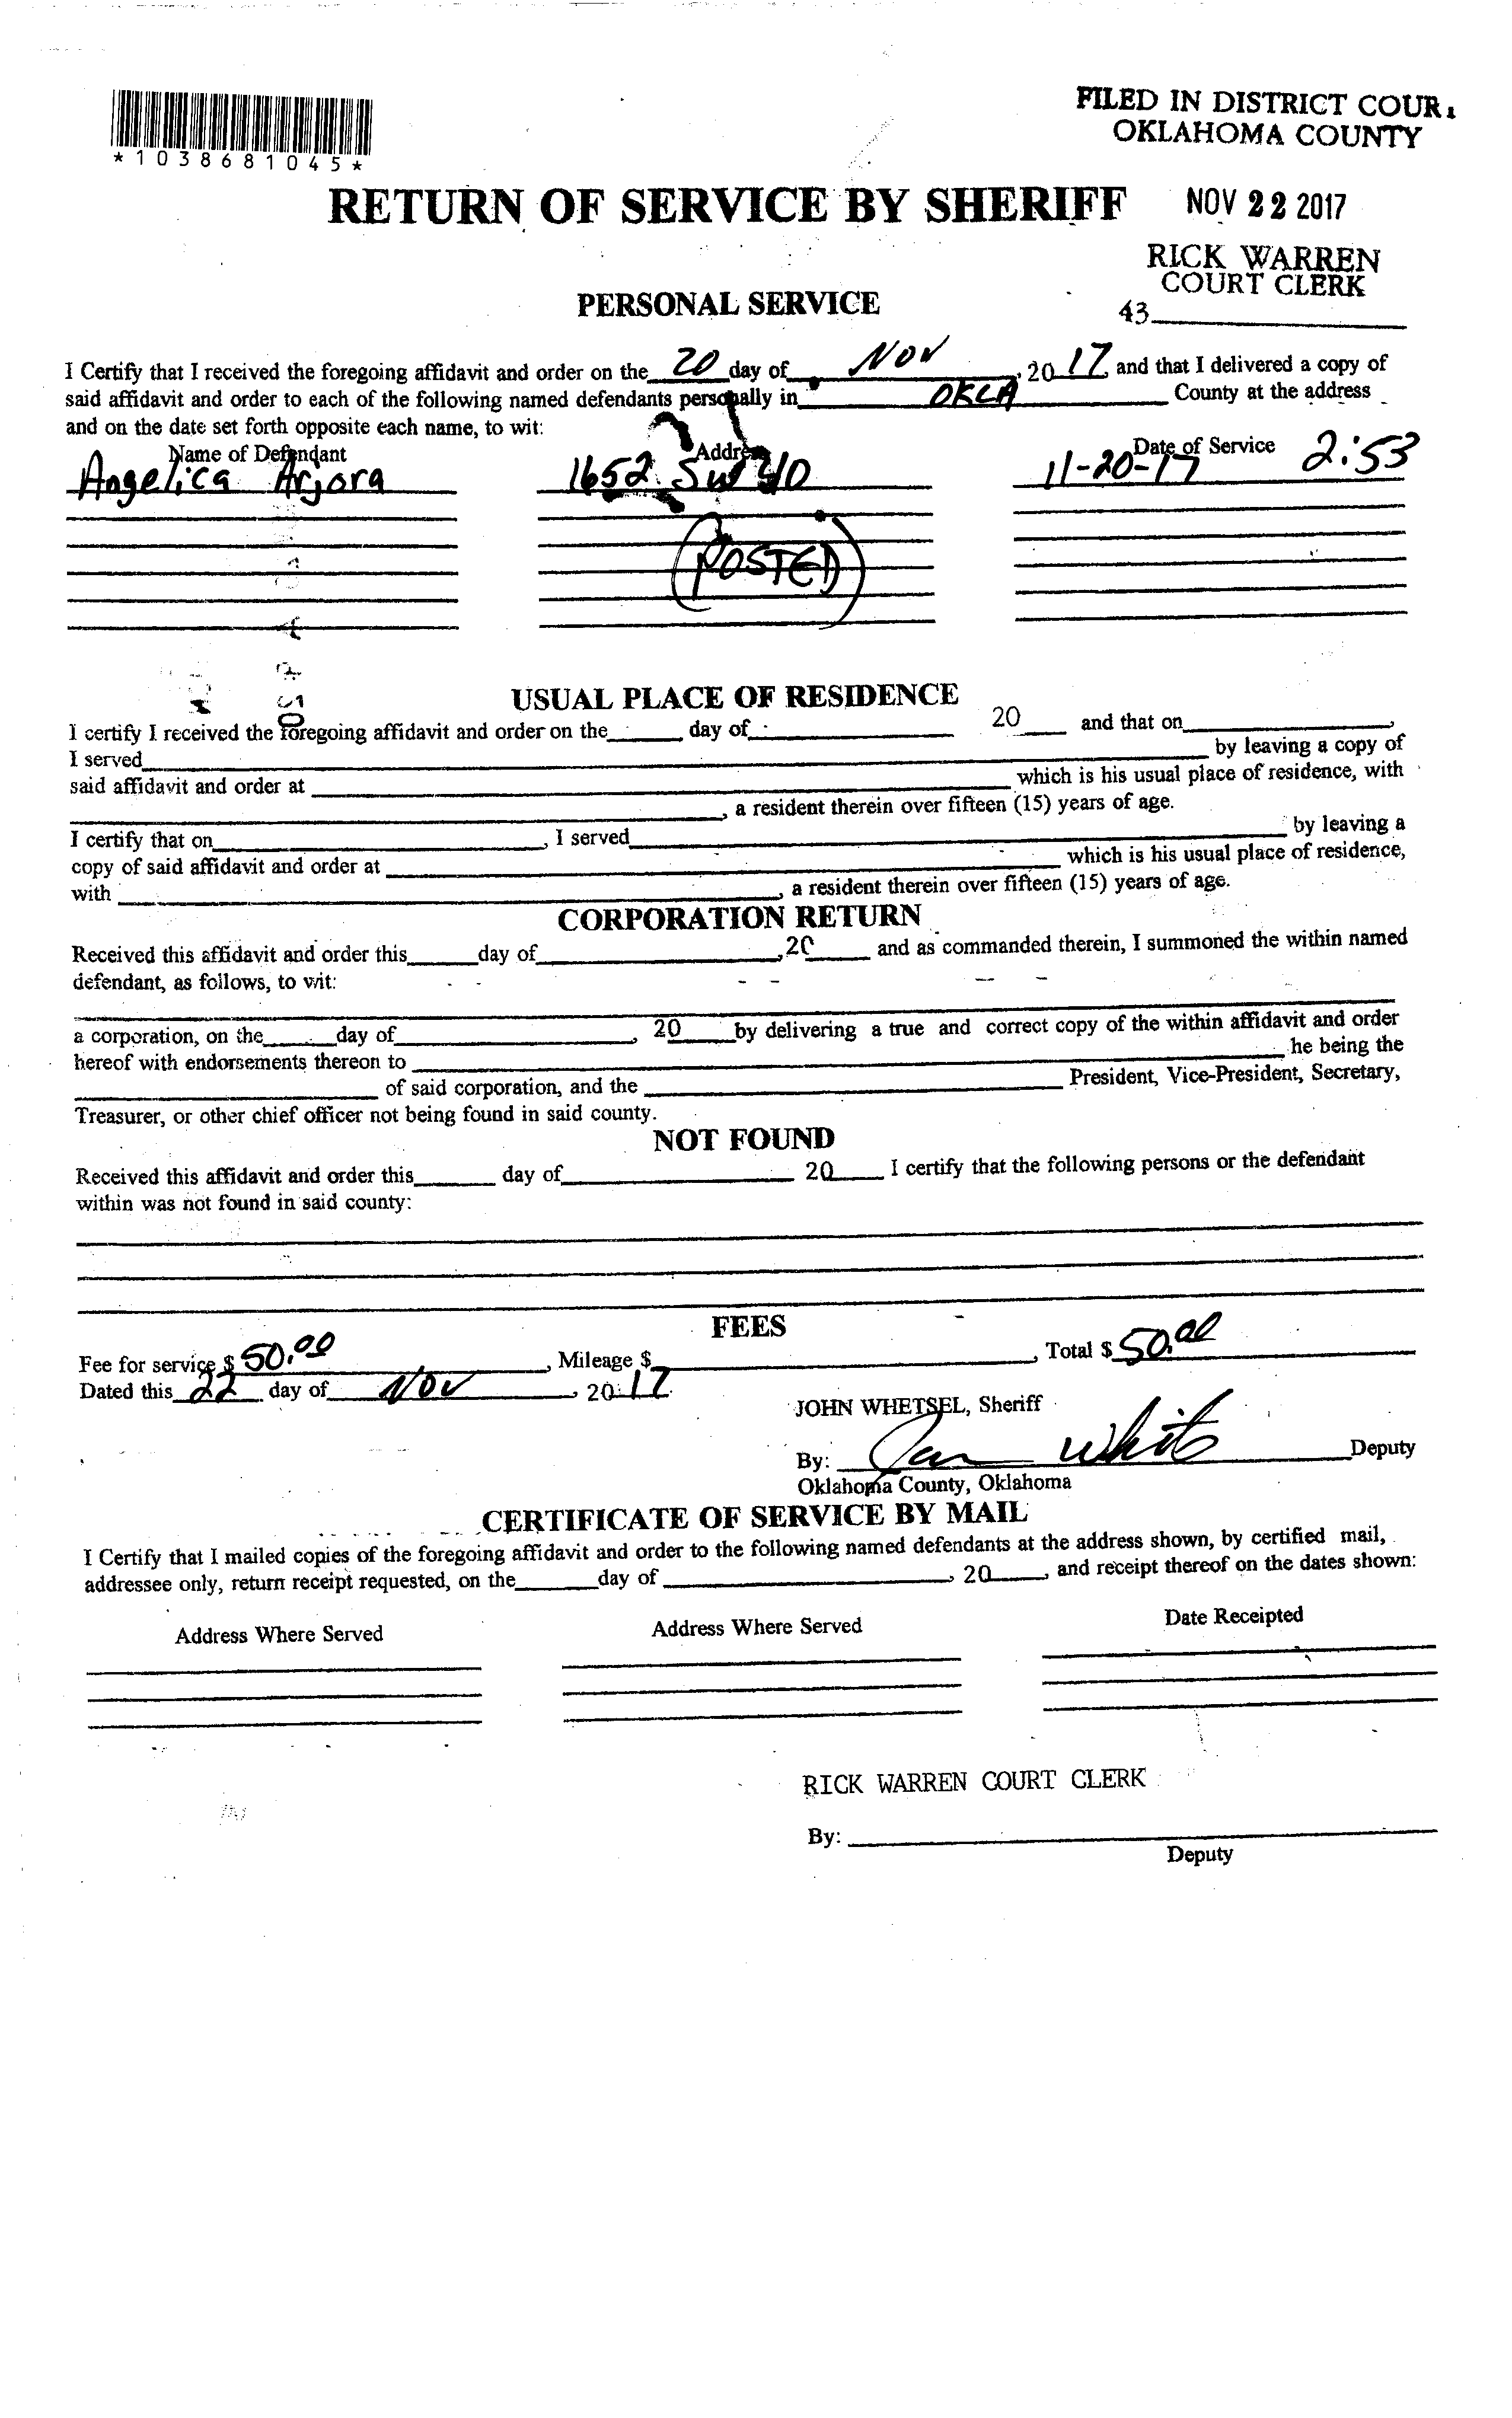 FILED IN DISTRICT COUR
OKLAHOMA COUNTY
*1038681045*
RETURN OF SERVICE BY SHERIFF
NOV 22 2017
RICK WARREN
COURT CLERK
PERSONAL SERVICE
43
I Certify that I received the foregoing affidavit and order on the 20 day of NOV, 2017 and that I delivered a copy of
said affidavit and order to each of the following named defendants personally in OKLA County at the address
and on the date set forth opposite each name, to wit:
Name of Defendant Address Date of Service
Angelica Arjora 1652 SW 40 11-20-17 2:53
(POSTED)
USUAL PLACE OF RESIDENCE
I certify I received the foregoing affidavit and order on the day of 20 and that on ,
I served by leaving a copy of
said affidavit and order at which is his usual place of residence, with
, a resident therein over fifteen (15) years of age.
I certify that on , I served by leaving a
copy of said affidavit and order at which is his usual place of residence,
with , a resident therein over fifteen (15) years of age.
CORPORATION RETURN
Received this affidavit and order this day of ,20 and as commanded therein, I summoned the within named
defendant, as follows, to wit:
a corporation, on the day of , 20 by delivering a true and correct copy of the within affidavit and order
hereof with endorsements thereon to he being the
of said corporation, and the President, Vice-President, Secretary,
Treasurer, or other chief officer not being found in said county.
NOT FOUND
Received this affidavit and order this day of 20 I certify that the following persons or the defendant
within was not found in said county:
FEES
Fee for service $ 50.00, Mileage $ , Total $ 50.00
Dated this 22 day of NOV, 2017
JOHN WHETSEL, Sheriff
By: White Deputy
Oklahoma County, Oklahoma
CERTIFICATE OF SERVICE BY MAIL
I Certify that I mailed copies of the foregoing affidavit and order to the following named defendants at the address shown, by certified mail,
addressee only, return receipt requested, on the day of , 20 , and receipt thereof on the dates shown:
Address Where Served Address Where Served Date Receipted
RICK WARREN COURT CLERK
By:
Deputy